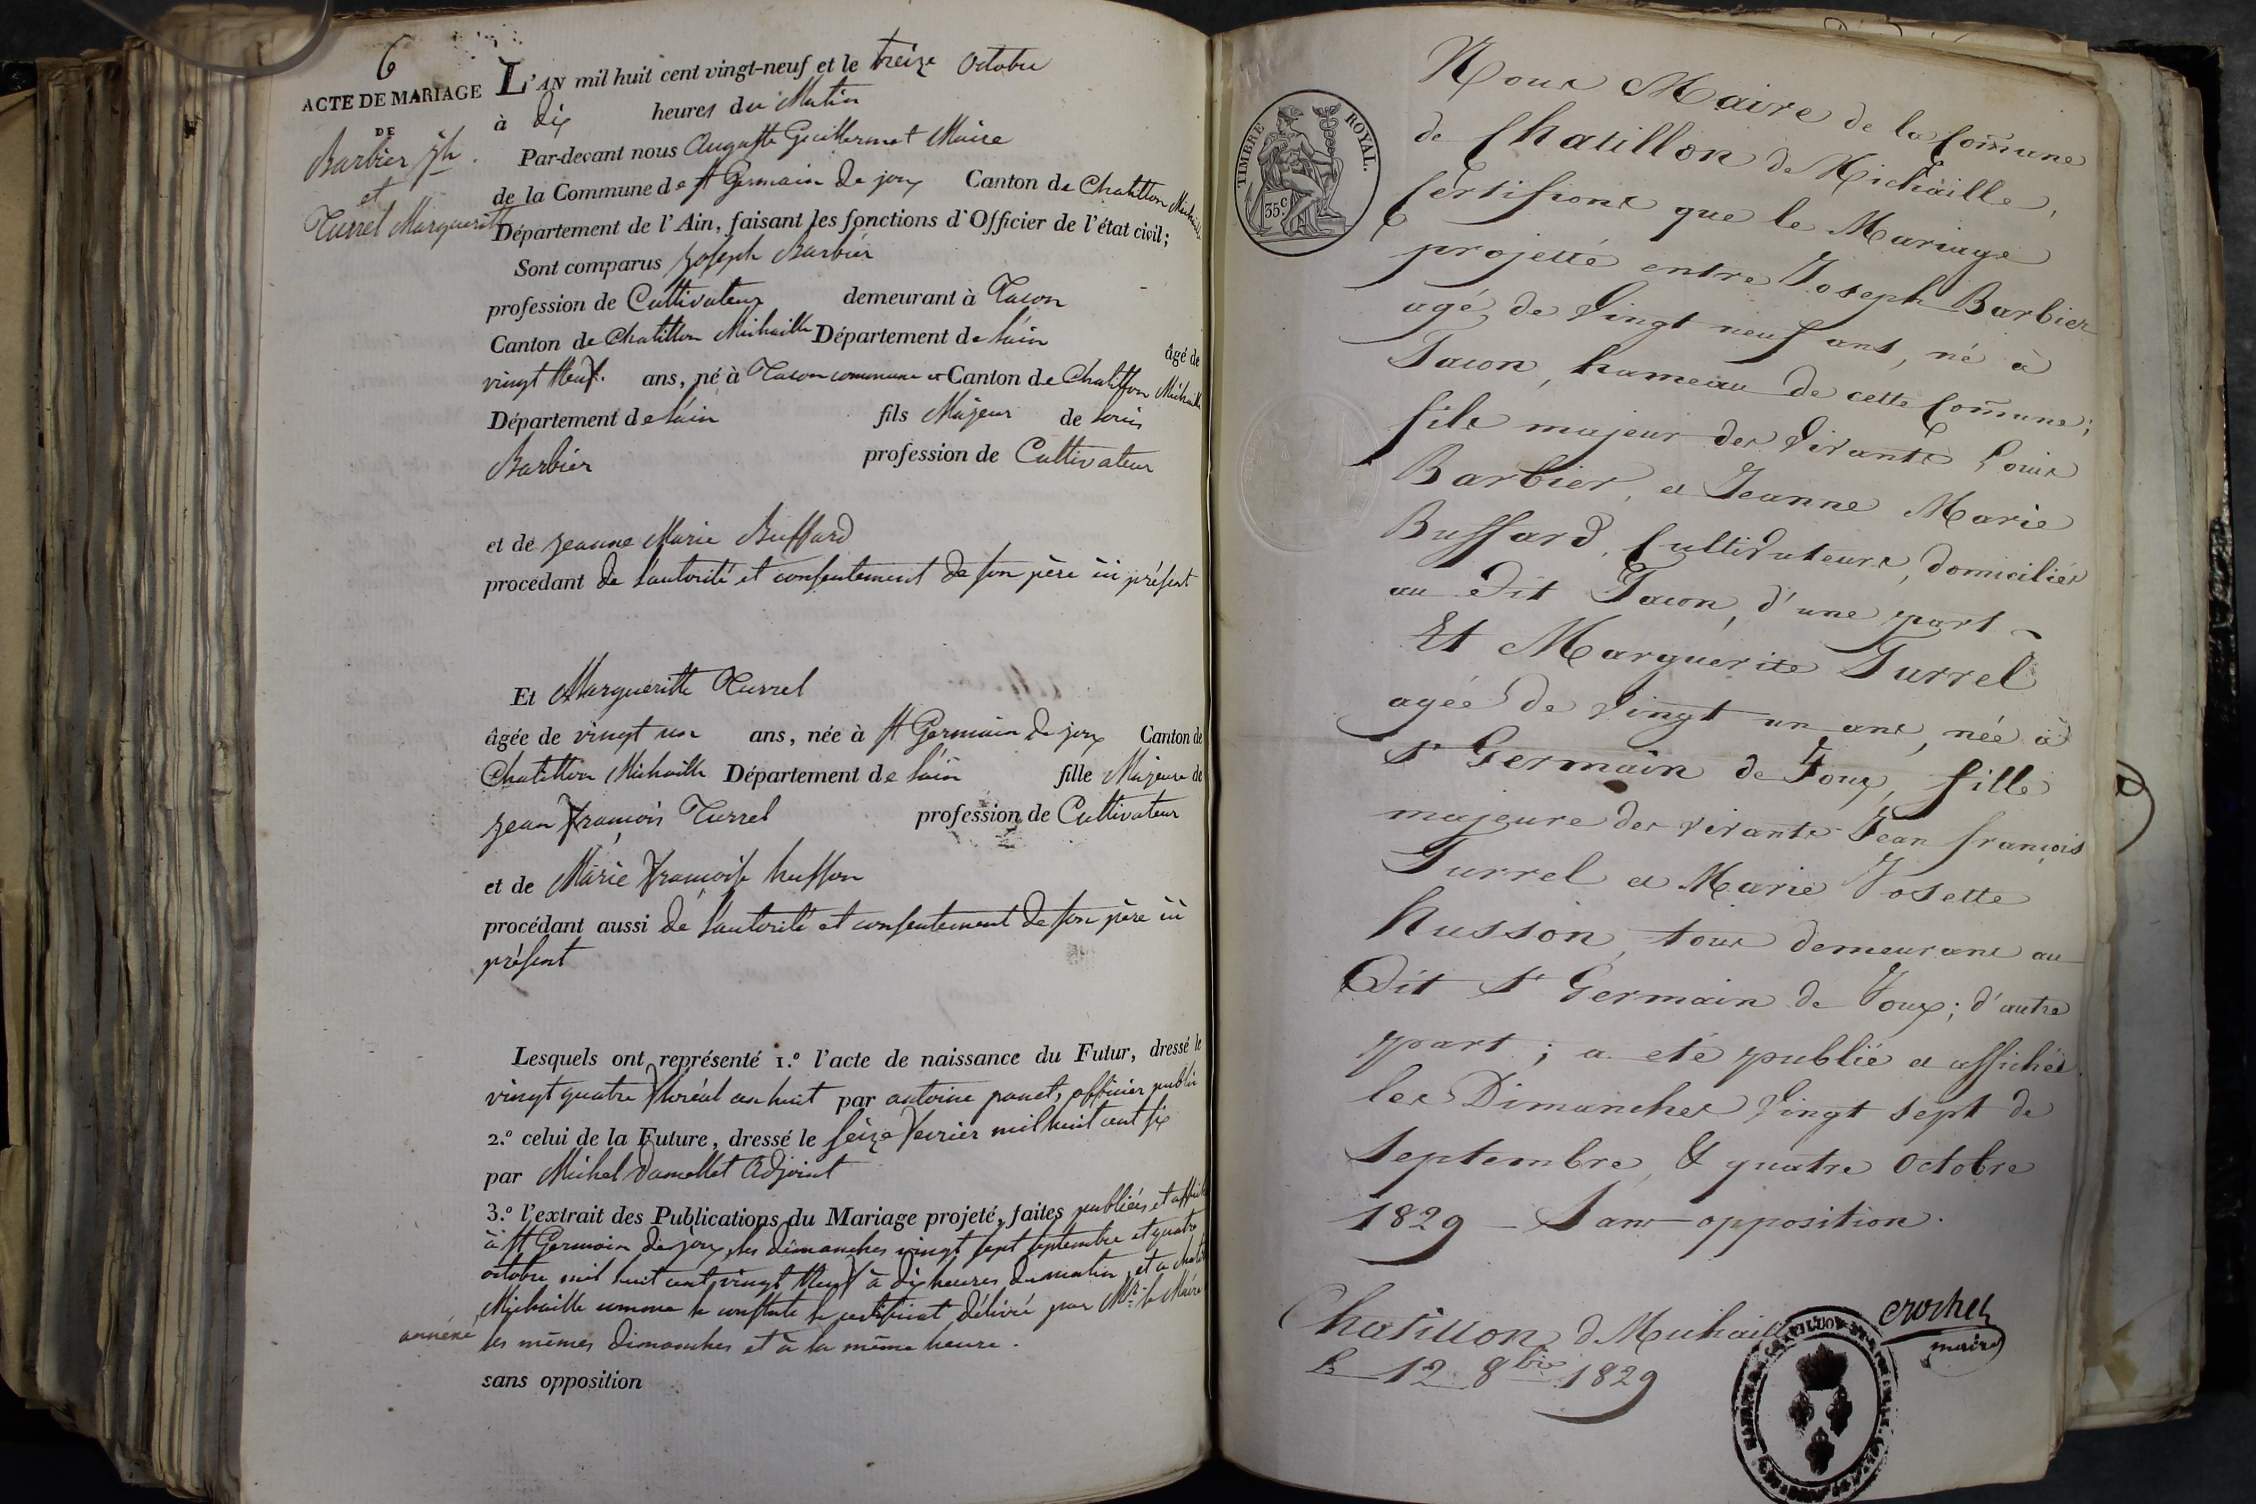 6
ACTE DE MARIAGE
DE
Barbier jh.
et
Turrel Margueritte
L'AN mil huit cent vingt-neuf et le treize Octobre
à dix heures du Matin
Par-devant nous Auguste Guillermet Maire
de la Commune de St Germain de joux Canton de Chatillon Michaille
Département de l'Ain, faisant les fonctions d'Officier de l'état civil;
Sont comparus joseph Barbier
profession de Cultivateur demeurant à Tacon
Canton de Chatillon Michaille Département de lain
âgé de
vingt Neuf. ans, né à Tacon commune et Canton de Chatillon Michaille
Département de lain fils Majeur de Louis
Barbier profession de Cultivateur
et de jeanne Marie Buffard
procédant de lautorité et consentement de son père ici présent
Et Margueritte Turrel
âgée de vingt un ans, née à St Germain de joux Canton de
Chatillon Michaille Département de lain fille Majeure de
jean françois Turrel profession de Cultivateur
et de Marie françoise husson
procédant aussi de lautorité et consentement de son père ici
présent
Lesquels ont représenté 1.º l'acte de naissance du Futur, dressé le
vingt quatre floréal an huit par antoine ponet, officier public
2.º celui de la Future, dressé le seize fevrier mil huit cent six
par Michel Adjoint
3.º l'extrait des Publications du Mariage projeté, faites publiées et
à St Germain de joux, les dimanches vingt sept septembre et quatre
octobre mil huit cent vingt Neuf à dix heures du matin, et a
Michaille comme le constate le certificat délivré par Mr. le Maire
annéxé les mêmes dimanches et à la même heure.
sans opposition
TIMBRE ROYAL.
35 c
Nous Maire de la Commune
de Chatillon de Michaille,
Certifions que le Mariage
projetté entre Joseph Barbier
agé de Vingt neuf ans, né à
Tacon, hameau de cette Commune;
fils majeur des Vivants Louis
Barbier, et Jeanne Marie
Buffard, Cultivateurs, domiciliés
au dit Tacon, d'une part
Et Marguerite Turrel
agée de Vingt un ans, née à
St Germain de Joux, fille
majeure des vivants Jean françois
Turrel et Marie Josette
husson, tous demeurans au
Dit St Germain de Joux; d'autre
part; a eté publié et affiché
les Dimanches Vingt sept de
Septembre, & quatre Octobre
1829 - Sans opposition.
Chatillon d Michaille
le 12 8bre 1829
crochet
maire